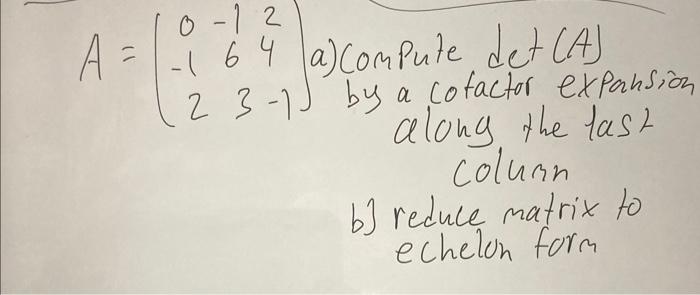 0 -1 2
A = -1 6 4 a) Compute det (A)
2 3 -1 by a cofactor expansion
along the last
column
b) reduce matrix to
echelon form